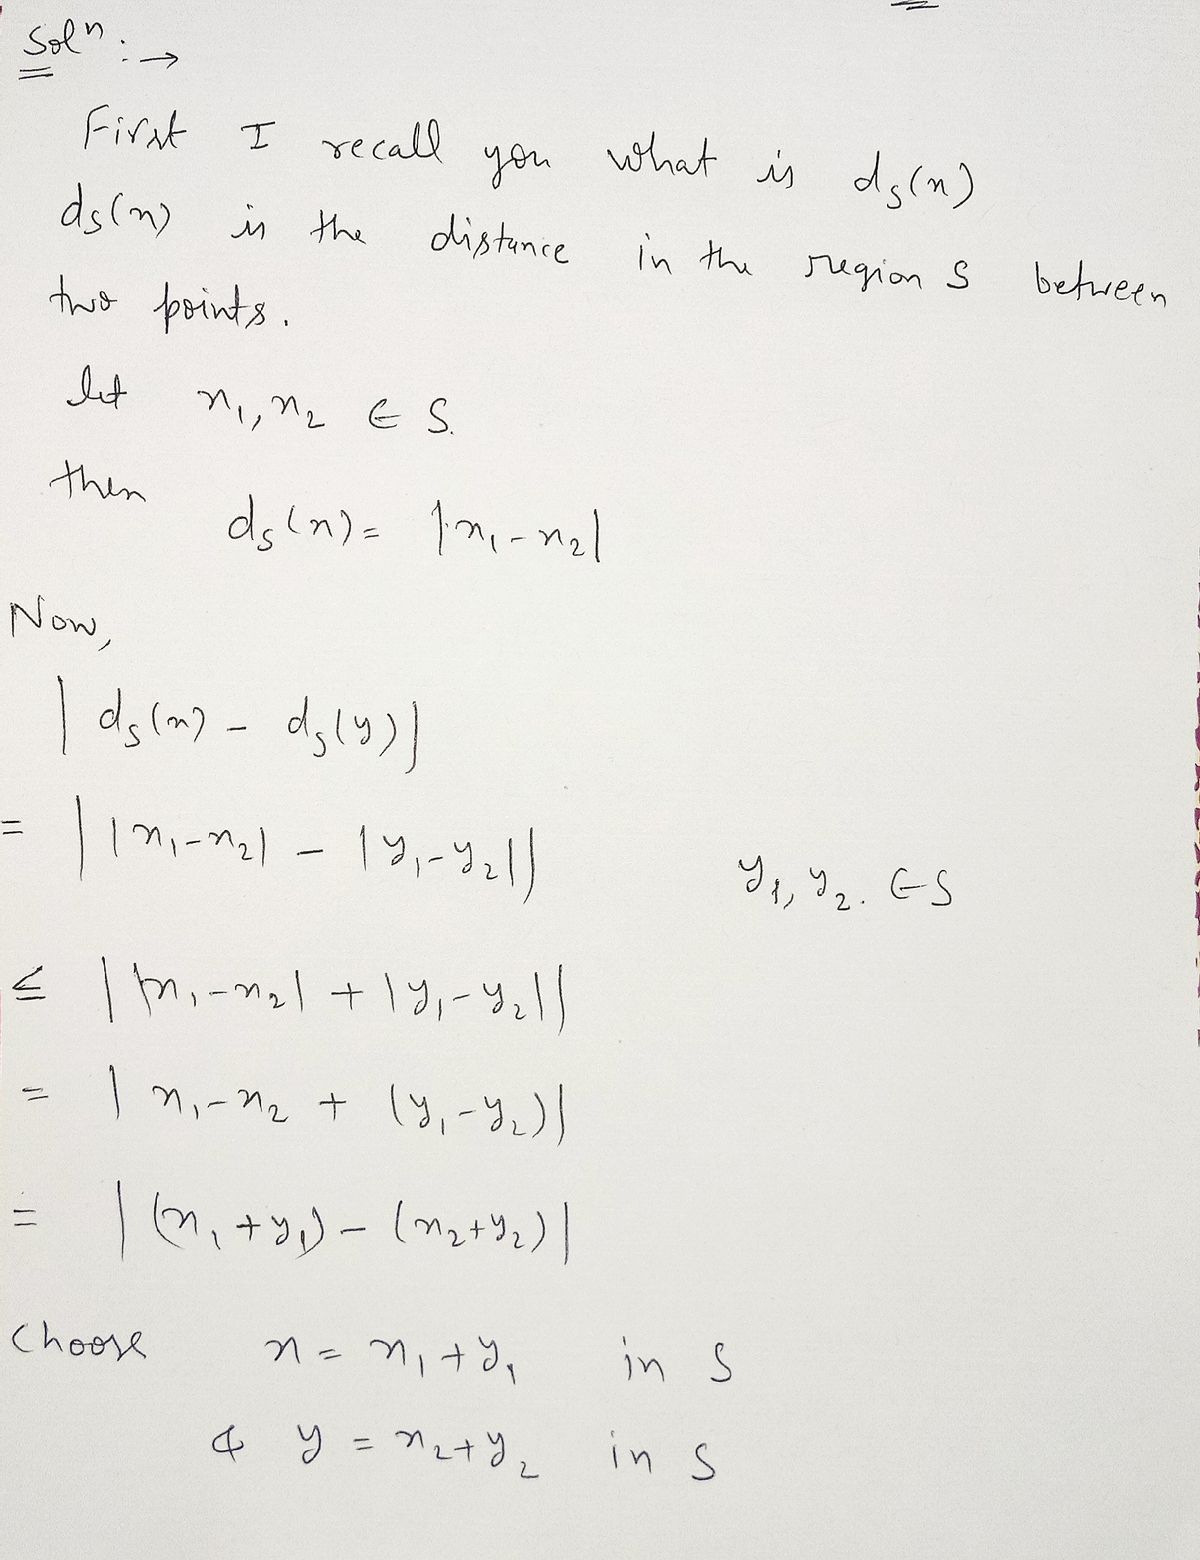 Solⁿ : →
First I recall you what is dₛ(x)
dₛ(x) is the distance in the region S between
two points.
let x₁, x₂ ∈ S.
then
dₛ(x) = |x₁ - x₂|
Now,
| dₛ(x) - dₛ(y) |
= | |x₁-x₂| - |y₁-y₂| | y₁, y₂. ∈ S
≤ | |x₁-x₂| + |y₁-y₂| |
= | x₁-x₂ + (y₁-y₂) |
= | (x₁+y₁) - (x₂+y₂) |
choose x = x₁+y₁ in S
& y = x₂+y₂ in S